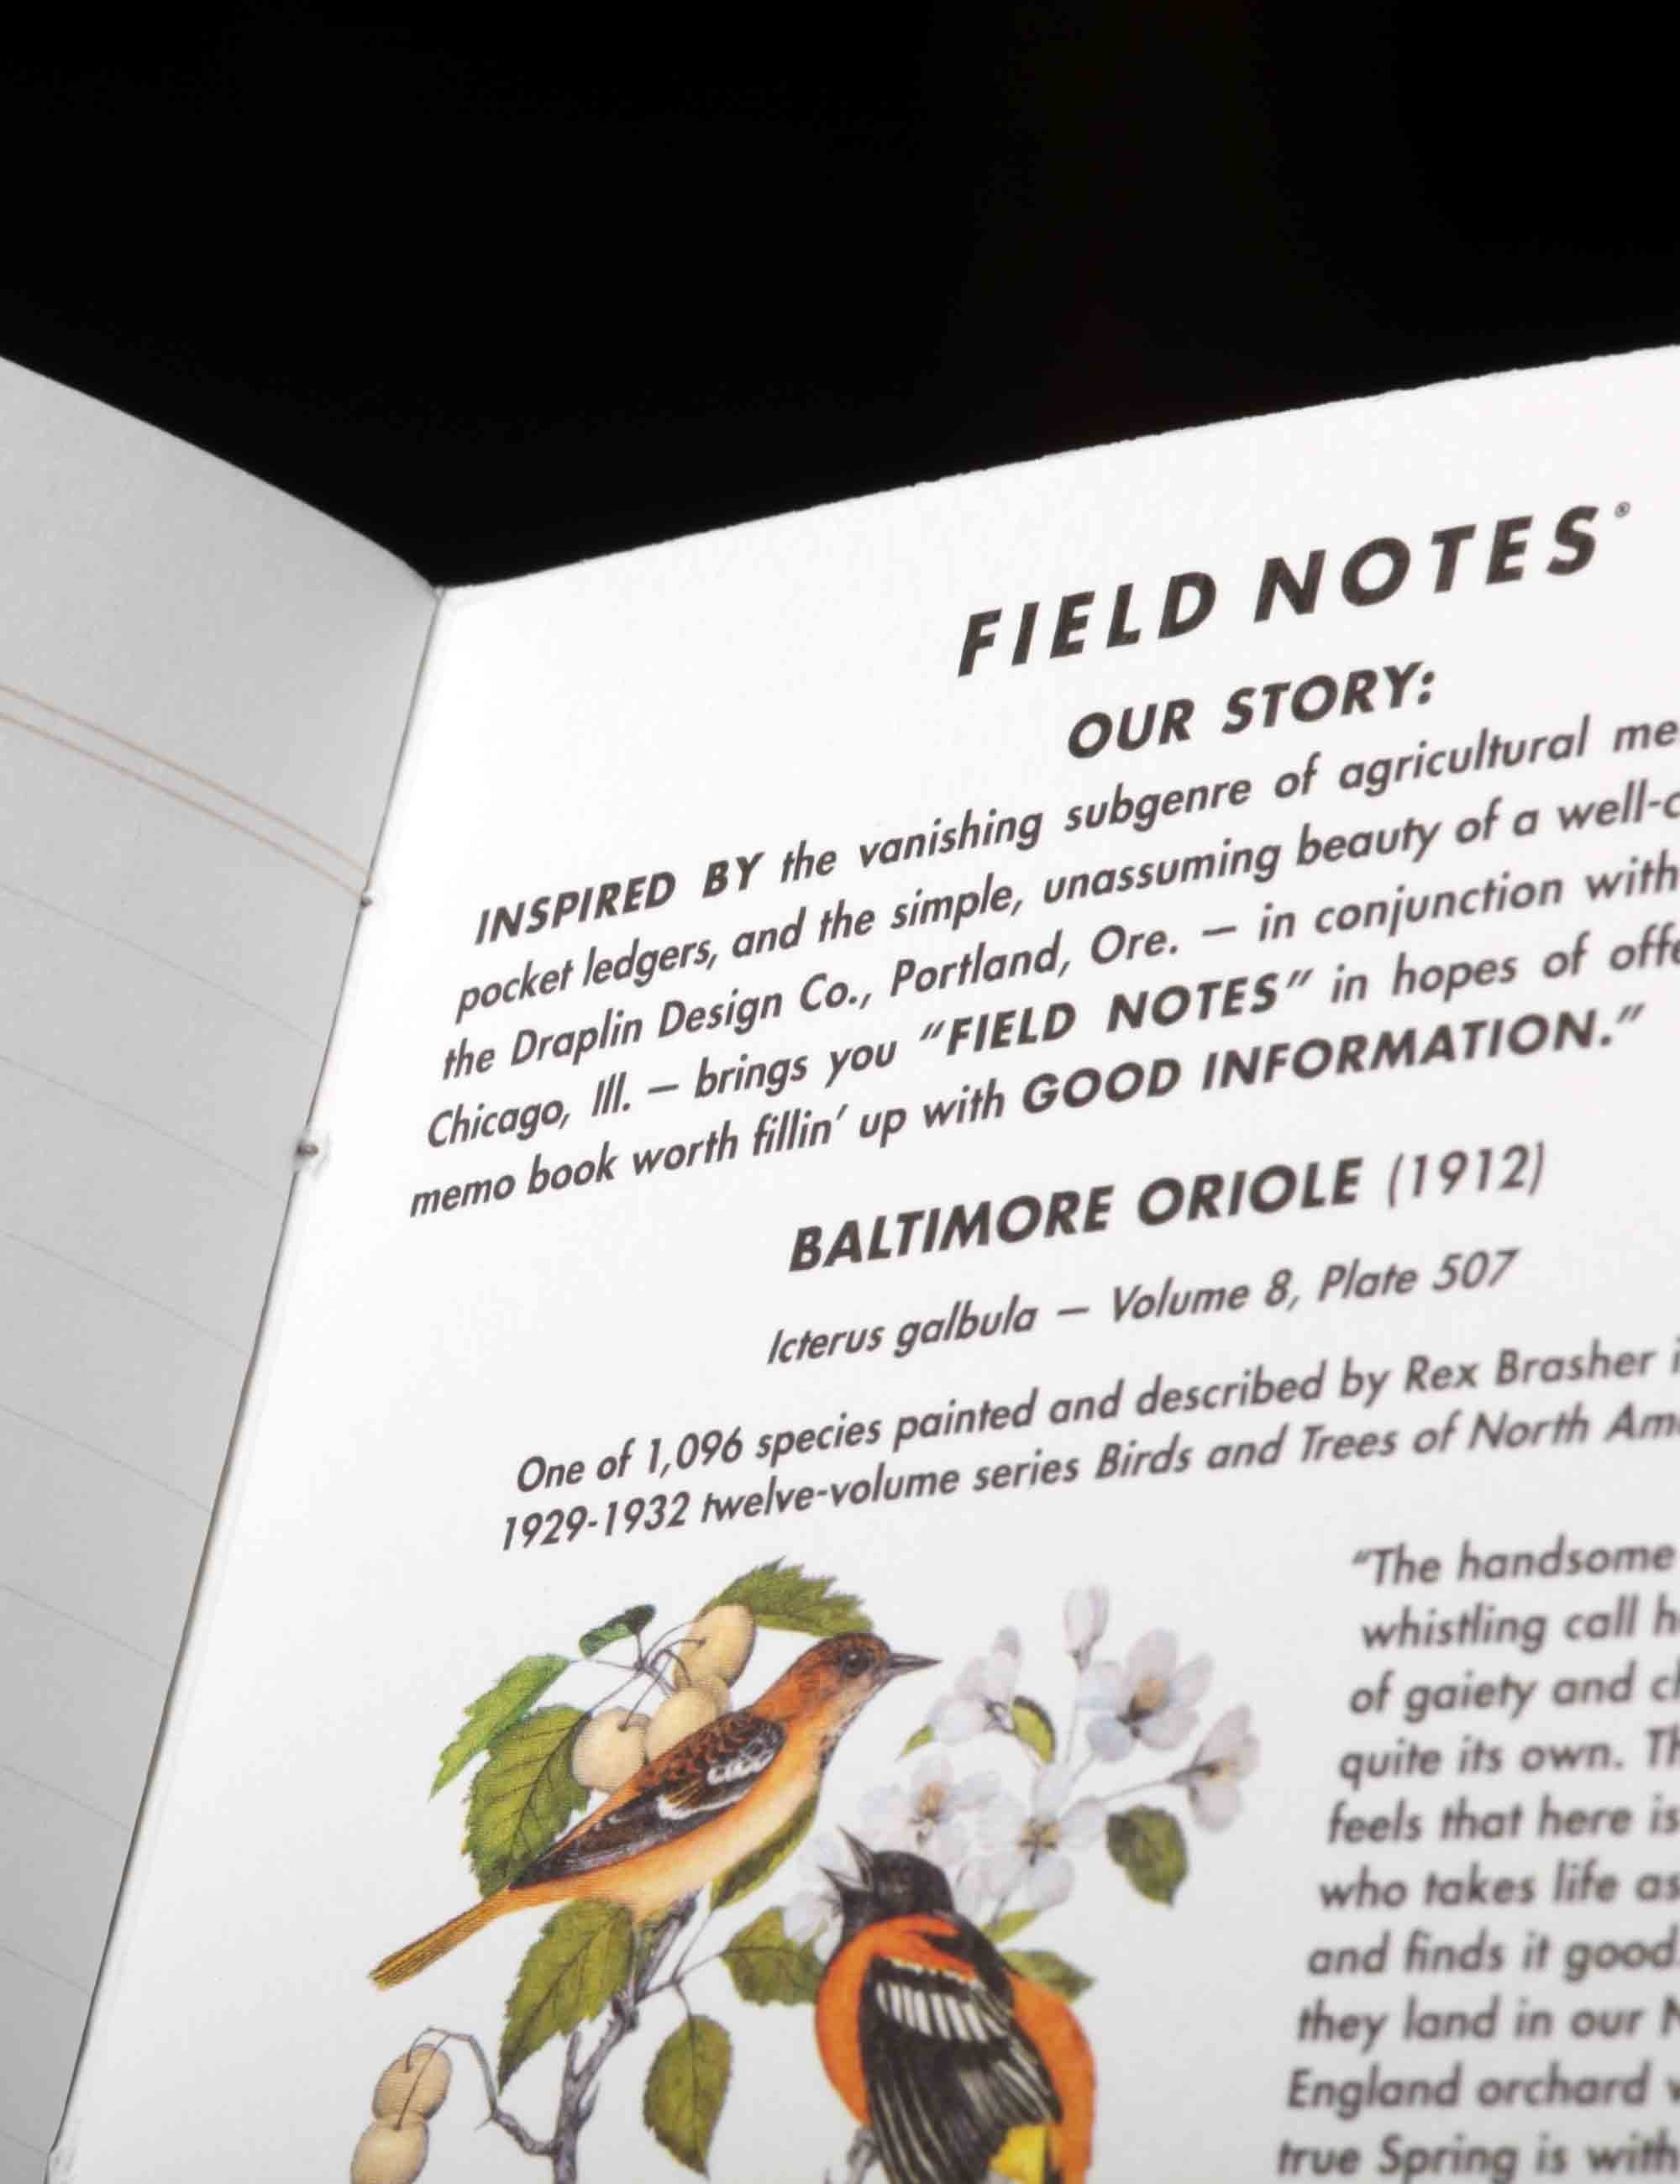 FIELD NOTES®
OUR STORY:
INSPIRED BY the vanishing subgenre of agricultural me
pocket ledgers, and the simple, unassuming beauty of a well-c
the Draplin Design Co., Portland, Ore. — in conjunction with
Chicago, Ill. — brings you "FIELD NOTES" in hopes of offe
memo book worth fillin' up with GOOD INFORMATION."
BALTIMORE ORIOLE (1912)
Icterus galbula — Volume 8, Plate 507
One of 1,096 species painted and described by Rex Brasher i
1929-1932 twelve-volume series Birds and Trees of North Am
"The handsome
whistling call h
of gaiety and ch
quite its own. Th
feels that here is
who takes life as
and finds it good.
they land in our N
England orchard w
true Spring is with